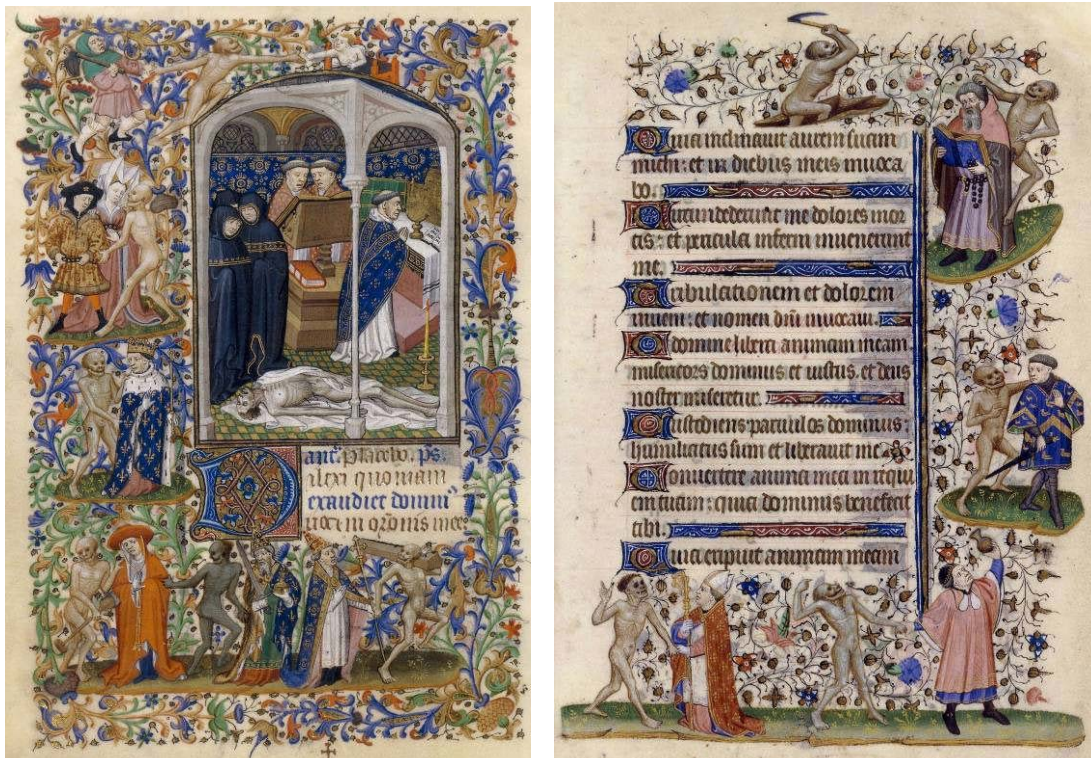 añt. Placebo. ps.
Dilexi quoniam
exaudiet domin⁹
vocem orōnis mee
Quia inclinauit aurem suam
michi: et in diebus meis inuoca
bo.
Circundederunt me dolores mor
tis: et pericula inferni inuenerunt
me.
Tribulationem et dolorem
inueni: et nomen dñi inuocaui.
O domine libera animam meam
misericors dominus et iustus. et deus
noster miseretur.
Custodiens paruulos dominus:
humiliatus sum et liberauit me.
Conuertere anima mea in requi
em tuam: quia dominus benefecit
tibi.
Quia eripuit animam meam